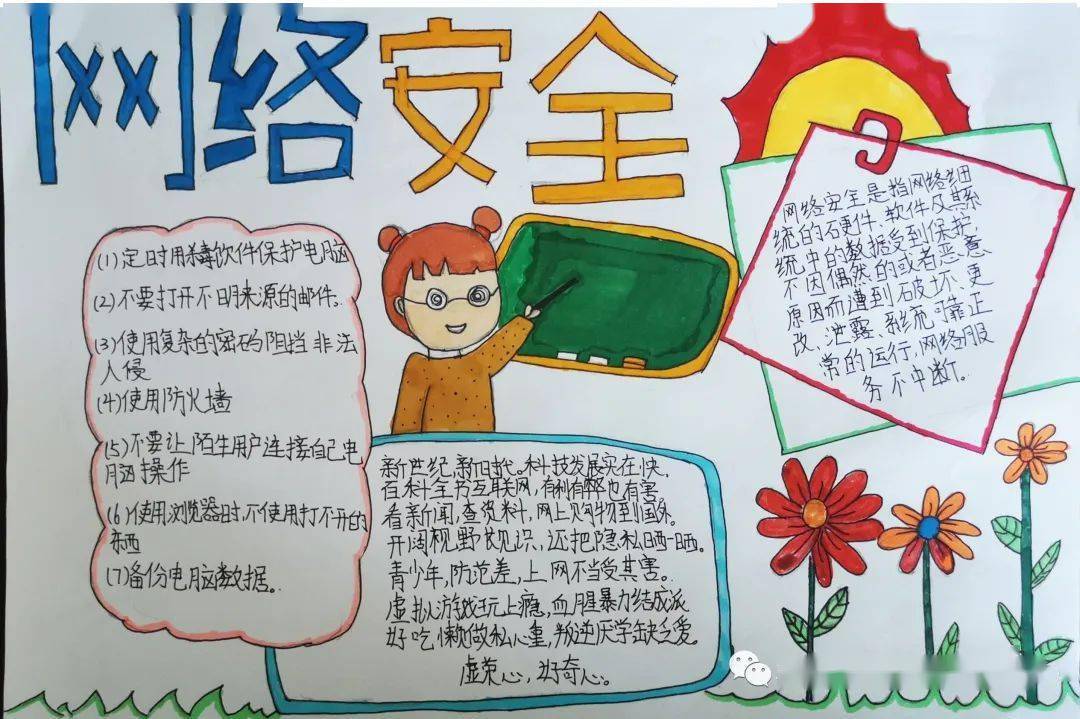 网络安全
(1)定时用杀毒软件保护电脑
(2)不要打开不明来源的邮件。
(3)使用复杂的密码阻挡非法
入侵
(4)使用防火墙
(5)不要让陌生用户连接自己电
脑操作
(6)使用浏览器时,不使用打不开的
东西
(7)备份电脑数据。
网络安全是指网络
统的硬件,软件及其系
统中的数据受到保护,
不因偶然的或者恶意
原因而遭到破坏、更
改、泄露,系统可靠正
常的运行,网络服
务不中断。
新世纪,新时代。科技发展实在快,
百科全书互联网,有利有弊也有害。
看新闻,查资料,网上购物到国外。
开阔视野长见识,还把隐私晒一晒。
青少年,防范差,上网不当受其害。
虚拟游戏玩上瘾,血腥暴力结成派
好吃懒做私心重,叛逆厌学缺乏爱。
虚荣心,好奇心。